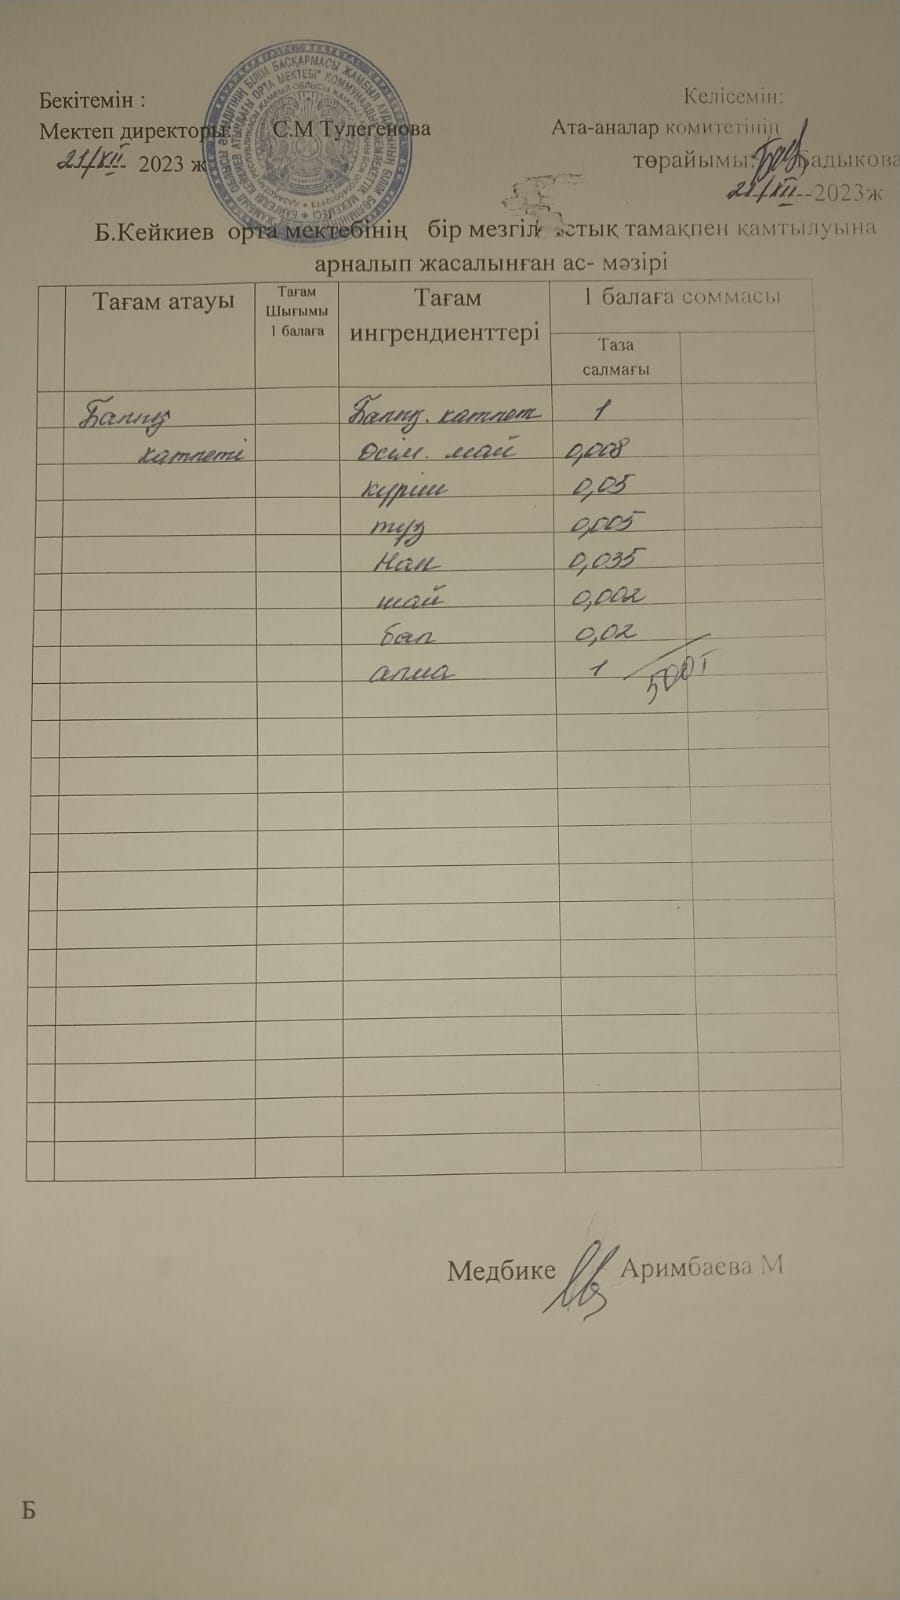 Бекітемін :
Келісемін:
Мектеп директоры: С.М Тулегенова
Ата-аналар комитетінің
21/XII 2023 ж
төрайымы: Бадыкова
21/XII 2023ж
Б.Кейкиев орта мектебінің бір мезгіл ыстық тамақпен қамтылуына
арналып жасалынған ас- мәзірі
Тағам атауы
Тағам
Шығымы
1 балаға
Тағам
ингрендиенттері
1 балаға соммасы
Таза
салмағы
Балық Балық. катлет 1
катлеті Өсім. май 0,008
күріш 0,05
тұз 0,005
Нан 0,035
шай 0,002
бал 0,02
алма 1 500т
Медбике Аримбаева М
Б